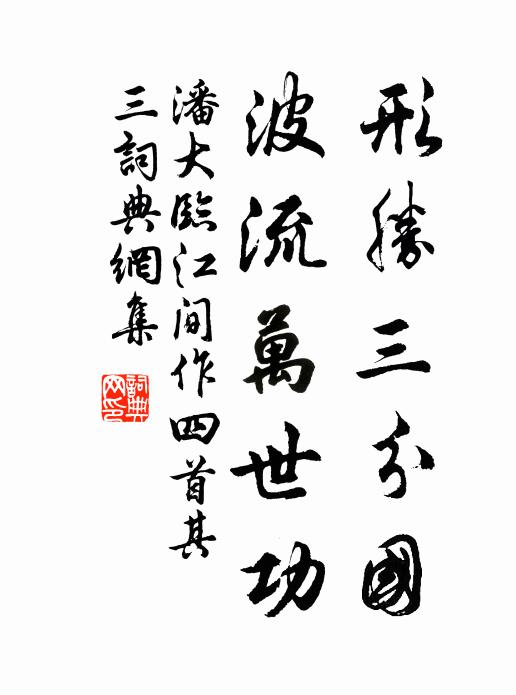 形勝三分國
波流萬世功
潘大臨江間作四首其
三詞典網集
詞典網印